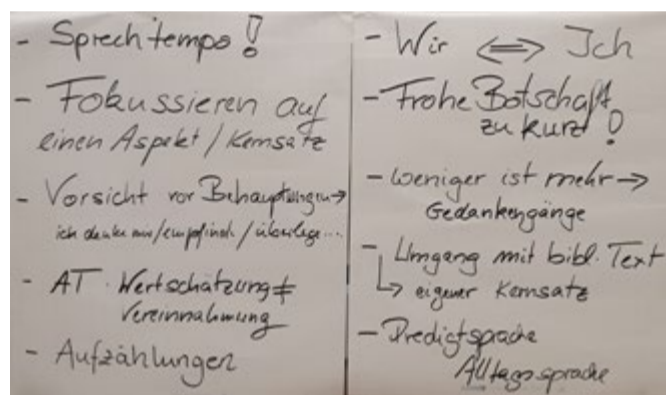 - Sprechtempo!
- Fokussieren auf
einen Aspekt / Kernsatz
- Vorsicht vor Behauptungen →
ich denke mir/empfinde/überlege...
- AT Wertschätzung ≠
Vereinnahmung
- Aufzählungen
- Wir ⟺ Ich
- Frohe Botschaft
zu kurz!
- weniger ist mehr →
Gedankengänge
- Umgang mit bibl. Text
↳ eigener Kernsatz
- Predigtsprache
Alltagssprache